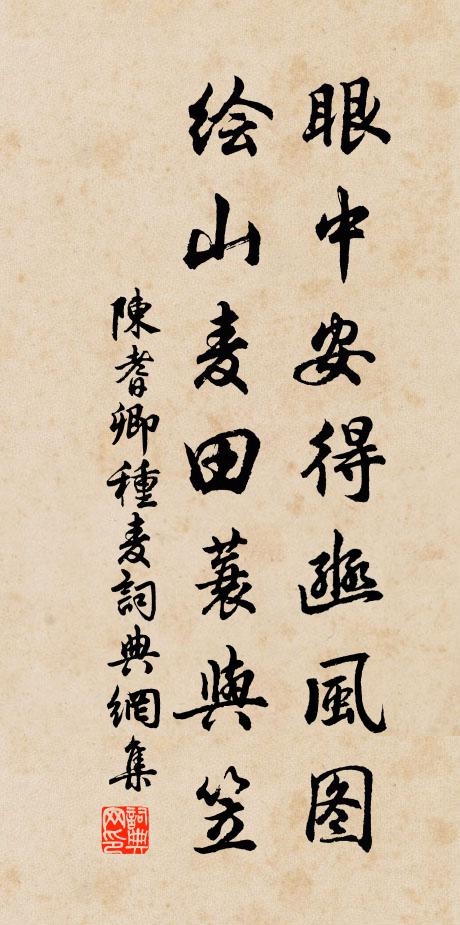 眼中安得豳風图
绘山麦田蓑與笠
陳耆卿種麦詞典網集
詞典网印